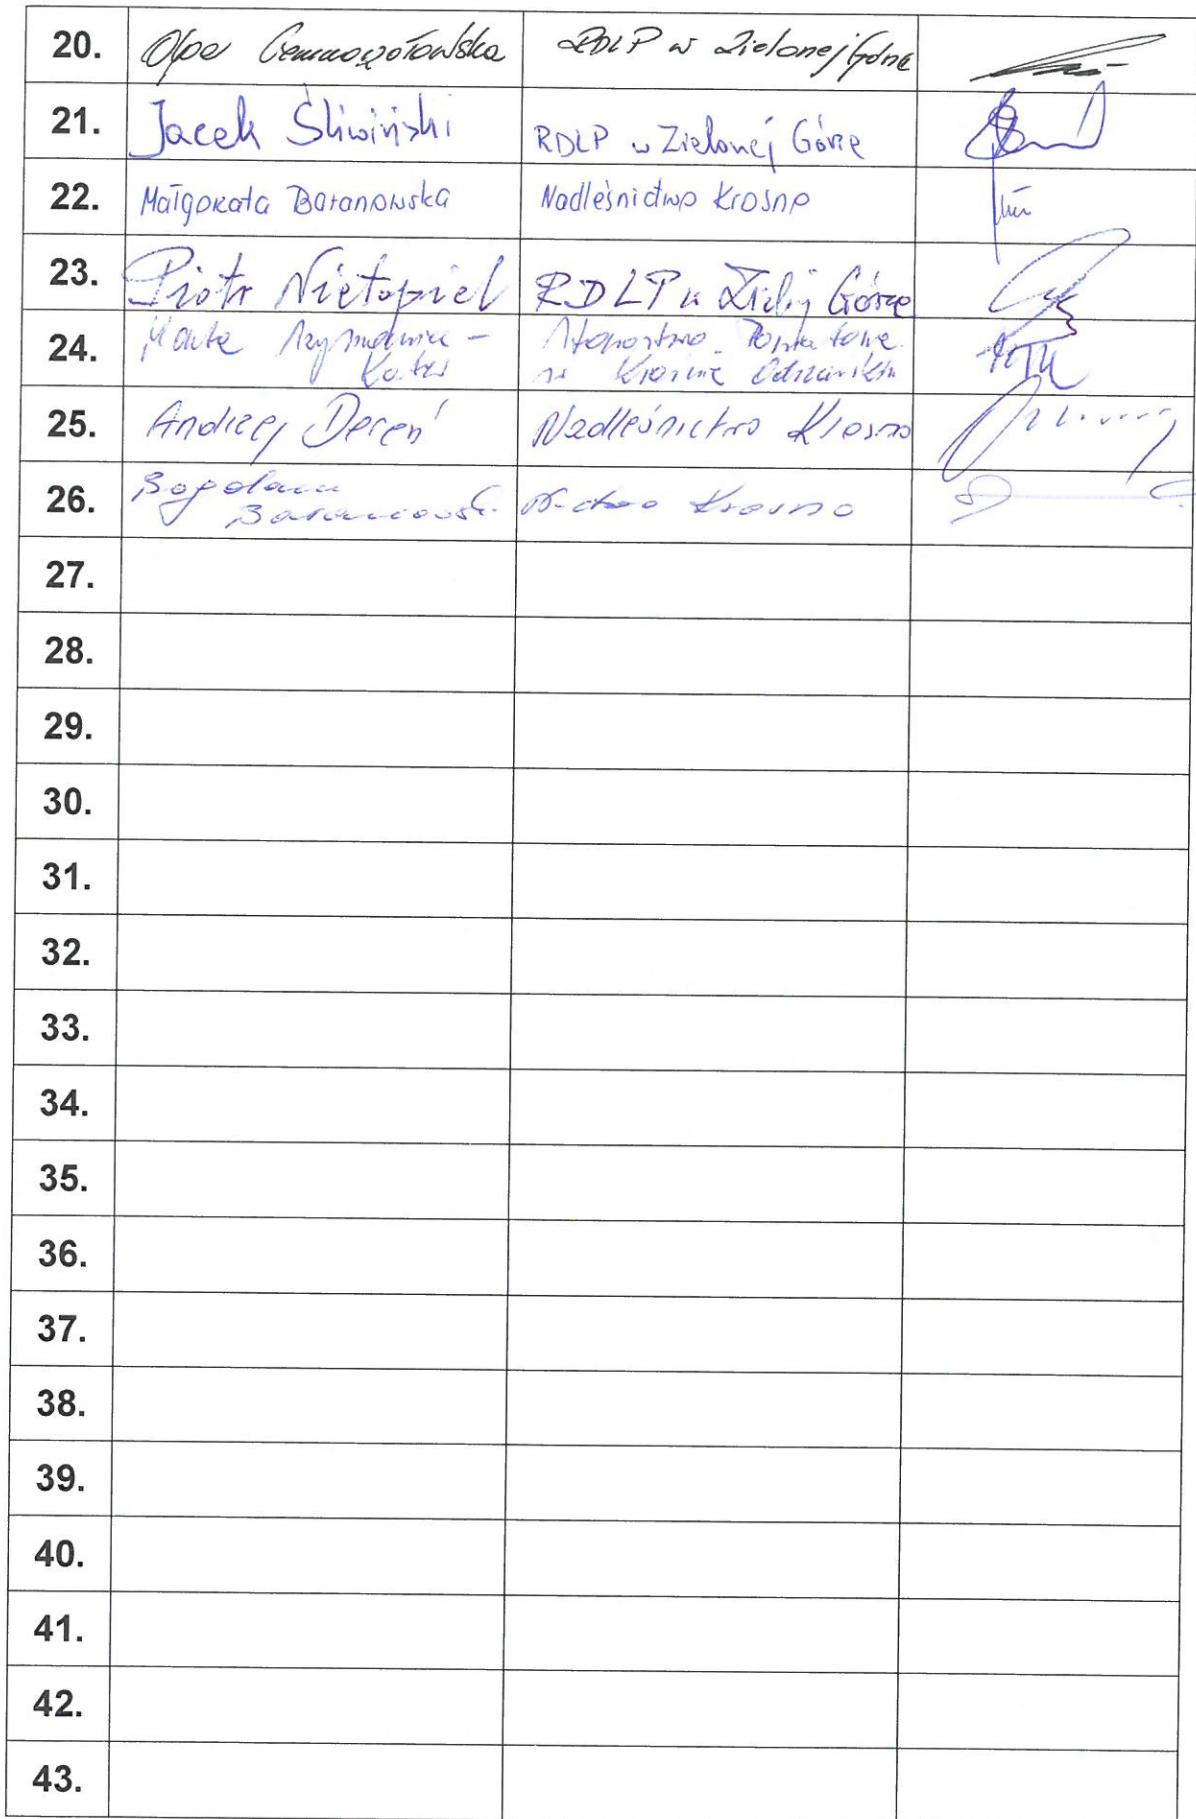 20. Olga RDLP w Zielonej Górze
21. Jacek Śliwiński RDLP w Zielonej Górze
22. Małgorzata Baranowska Nadleśnictwo Krosno
23. Piotr Nietopiel RDLP w Górze
24. Starostwo Powiatowe
w Krośnie Odrzańskim
25. Andrzej Dereń Nadleśnictwo Krosno
26. Bogdan
Baranowski Krosno
27.
28.
29.
30.
31.
32.
33.
34.
35.
36.
37.
38.
39.
40.
41.
42.
43.